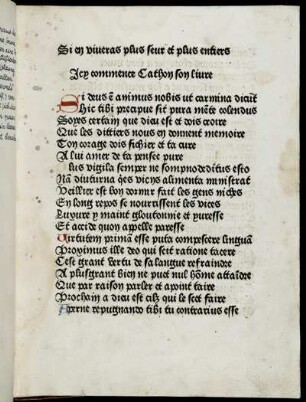 Si en viueras plus seur et plus entiers
Icy commence Cathon son liure
Si deus e animus nobis ut carmina dicut
Hic tibi precipue sit pura mete colendus
Soyes certain que dieu est et dois croire
Que les dittiers nous en donnent memoire
Ton corage dois fichier et ta cure
A lui amer de ta pensee pure
lus vigila semper ne sompno deditus esto
Na diuturna ges vicijs alimenta ministrat
Veillier est bon dormir fait les gens niches
En long repos se nourrissent les vices
Luxure y maint gloutonnie et yuresse
Et accide quon appelle paresse
Virtutem prima esse puta compescere lingua
Proximus ille deo qui scit ratione tacere
Cest grant vertu de sa langue refraindre
A plus grant bien ne puet nul home attaidre
Que par raison parler et a point taire
Prochain a dieu est cilz qui le scet faire
Sperne repugnando tibi tu contrarius esse